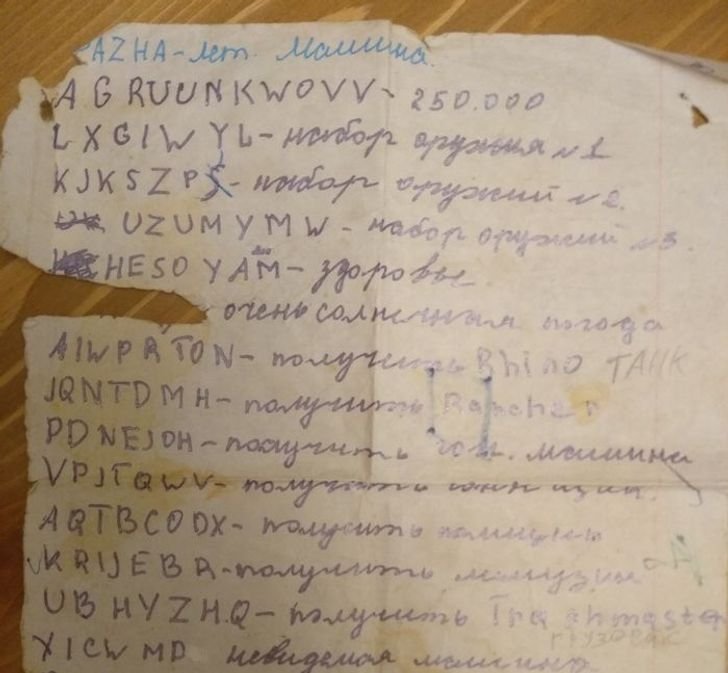 AZHA-лет. Машина.
AGRUUNKWOVV- 250.000
LXGIWYL- набор оружия №1
KJKSZPJ- набор оружий №2.
UZUMYMW- набор оружий №3.
HESOYAM- здоровье
очень солнечная погода
AIWPRTON- получить Rhino ТАНК
JQNTDMH- получить Rancher
PDNEJOH- получить гон. машина
VPJTQWV- получить гон.
AQTBCODX- получить
KRIJEBR- получить
UBHYZHQ- получить Trashmaster
грузовик
XICWMD невидемая машина